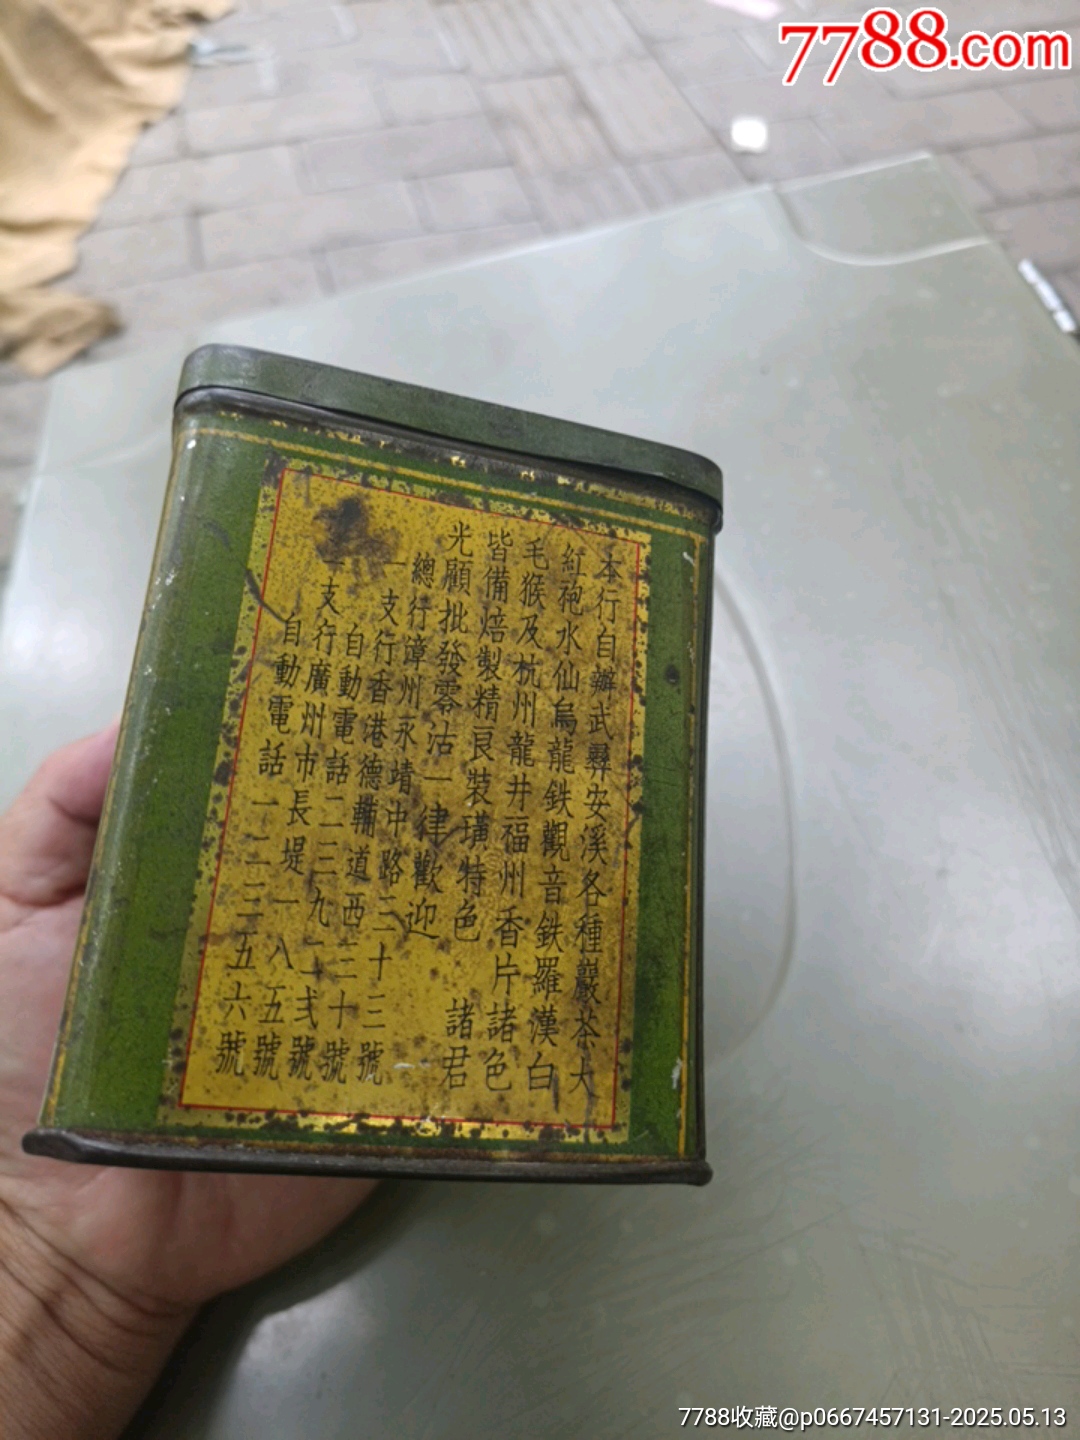 7788.com
本行自辦武彞安溪各種巖茶大
紅袍水仙烏龍鉄觀音鉄羅漢白
毛猴及杭州龍井福州香片諸色
皆備焙製精良裝璜特色 諸君
光顧批發零沽一律歡迎
總行漳州永靖中路三十三號
一支行香港德輔道西三十號
自動電話二三九二弍號
一支行廣州市長堤一八五號
自動電話一二三五六號
7788收藏@p0667457131-2025.05.13